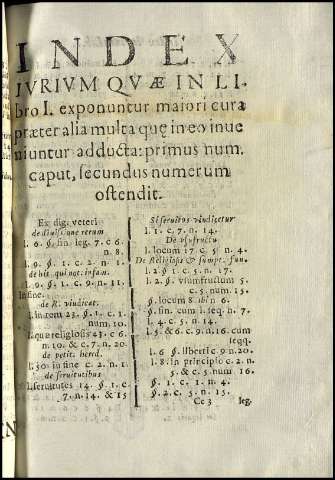 INDEX
IVRIVM QVÆ IN LI-
bro I. exponuntur maiori cura
præter alia multa quę in eo inue
niuntur adducta: primus num.
caput, secundus numerum
ostendit.
Ex dig. veteri
de diuisione rerum
l. 6. §. fin. leg. 7. c 6.
n. 8.
l. 9. §. 1. c. 2. n. 1.
de his qui not. infam.
l. 9. §. 1. c. 9. n. 11.
in fine.
de R. vindicat.
l. in rem 23. §. 1. c. 1.
num. 10.
l. quæ religiosis 43. c 6.
n. 10. & c. 7. n. 20.
de petit. hered.
l. 50. in fine c. 2. n. 1.
de seruitutibus
l. seruitutes 14. §. 1. c.
7. n. 14. & 15
Si seruitus vindicetur
l. 1. c. 7. n. 14.
De vsufructu
l. locum 17 c. 5 n. 4.
De Religiosis & sumpt. fun.
l. 2. §. 1 c. 5. n. 17.
l. 2. §. vsumfructum 5.
c. 5. num. 15.
§. locum 8 ibi n 6.
§. fin. cum l. seqq. n. 7.
l. 4. c. 5. n. 14.
l. 5. & 6. c. 9. n. 16. cum
seqq.
l. 6 §. liberti c 9. n. 20.
l. 8. in principio c. 2. n.
5. & c 5. num 16.
§. 1. c. 1. n. 4.
§. 2. c. 5. n. 15.
Cc 3 leg.